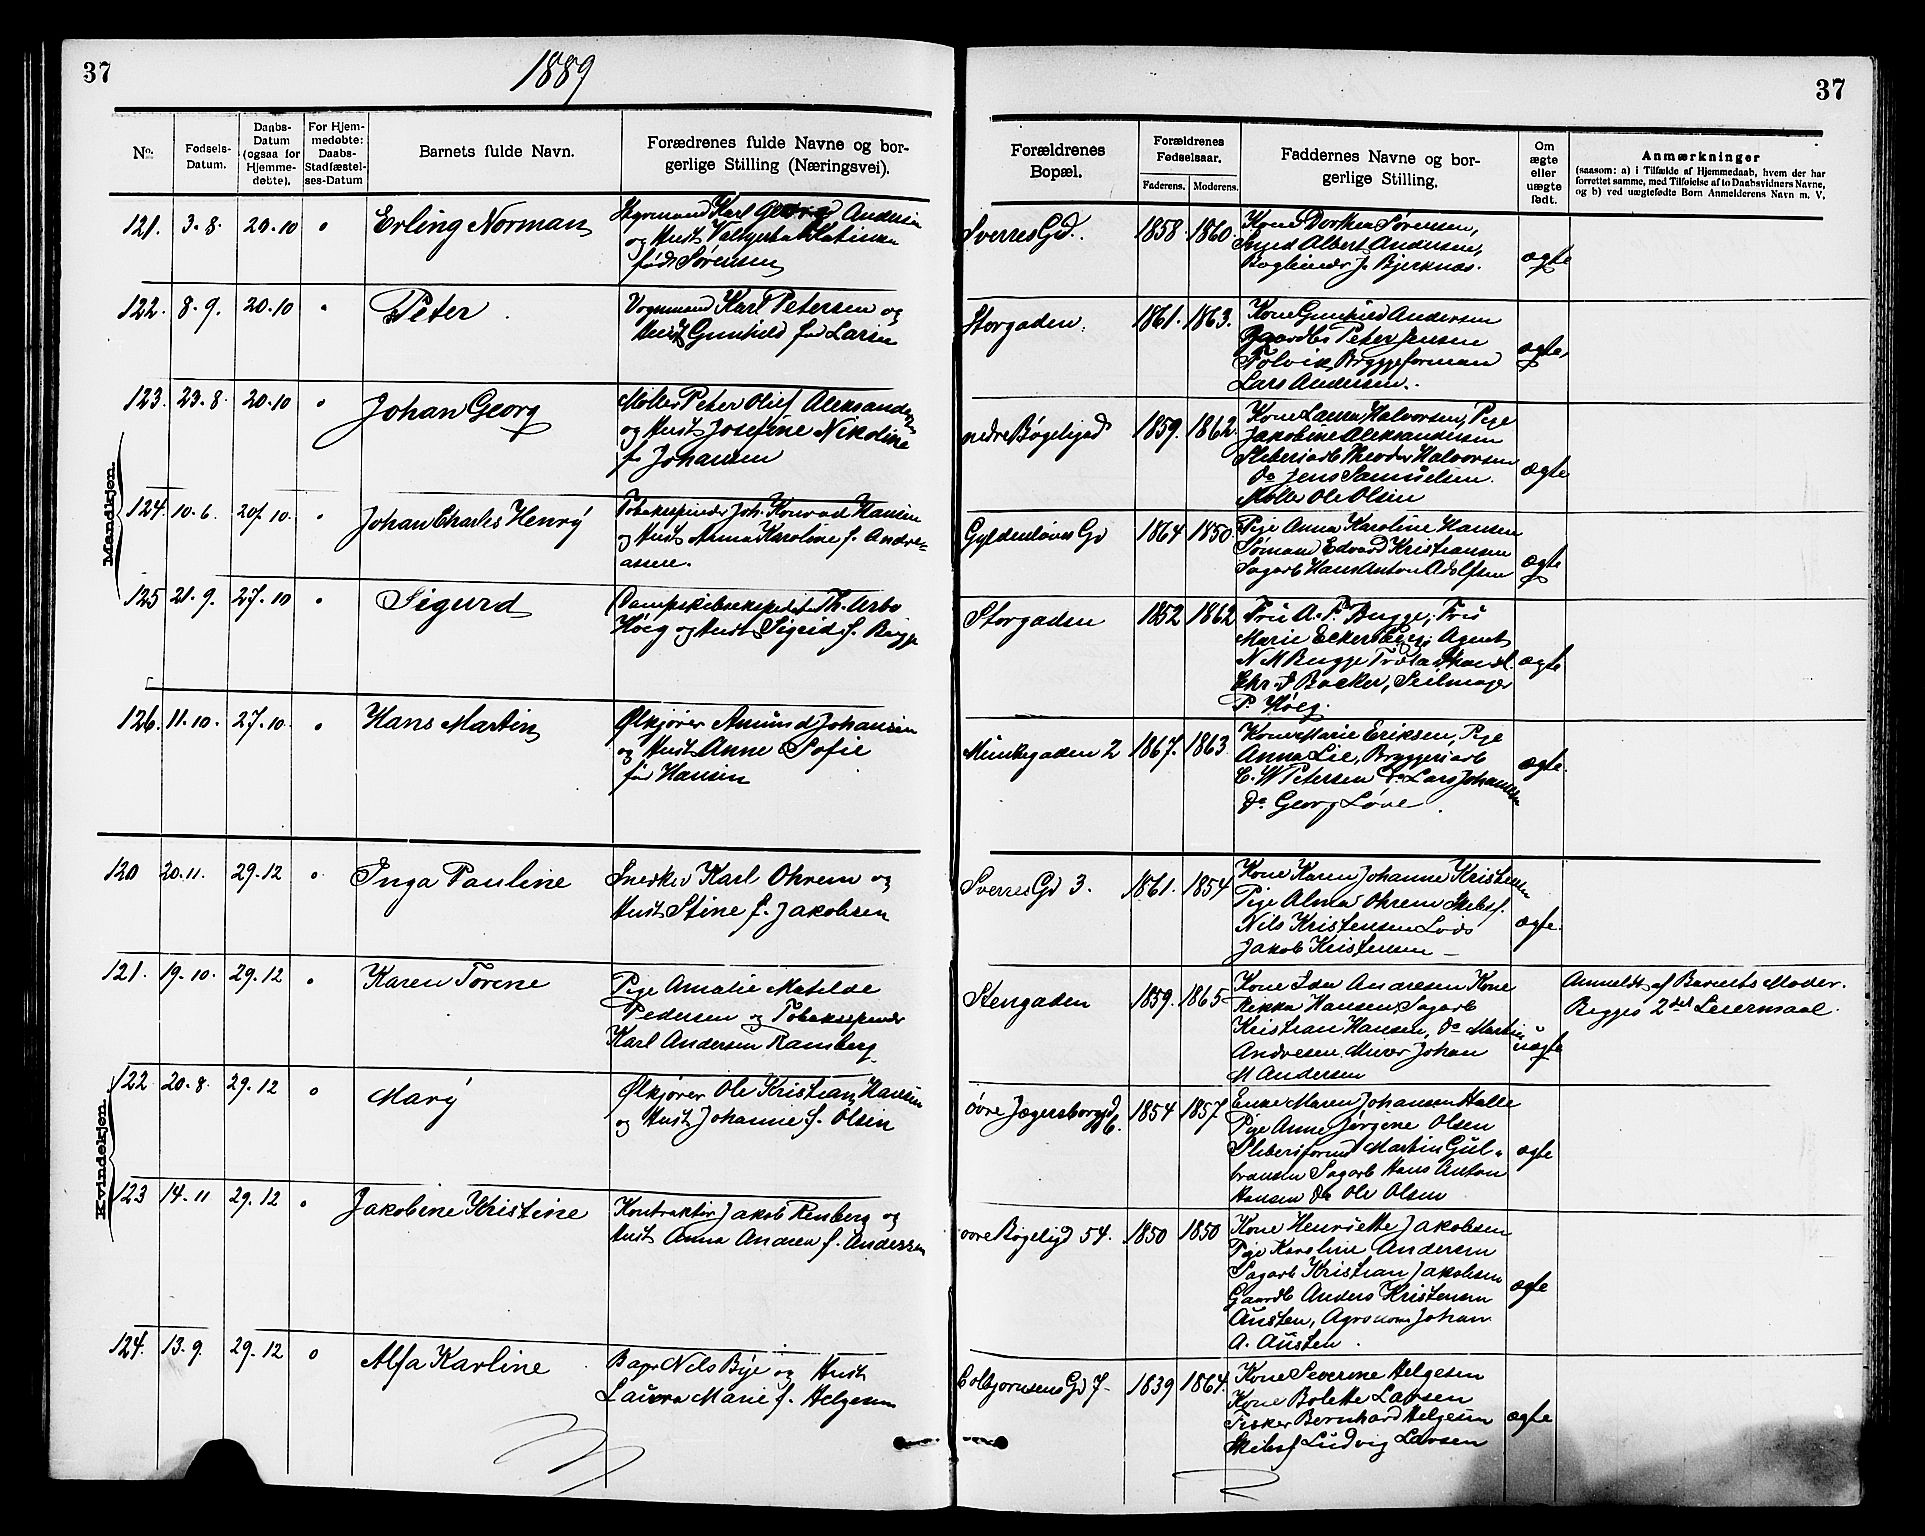 37
1889
37
No.
Fødsels-Datum.
Daabs-Datum (ogsaa for Hjemme-døbte).
For Hjem-medøbte: Daabs-Stadfæstel-ses-Datum
Barnets fulde Navn.
Forædrenes fulde Navne og bor-
gerlige Stilling (Næringsvei).
Forældrenes
Bopæl.
Forældrenes
Fødselsaar.
Faderens. Moderens.
Faddernes Navne og bor-
gerlige Stilling.
Om ægte eller uægte født.
Anmærkninger
(saasom: a) i Tilfælde af Hjemmedaab, hvem der har
forrettet samme, med Tilføielse af to Daabsvidners Navne,
og b) ved uægtefødte Børn Anmelderens Navn m. V.
Mandkjøn.
121. 3.8. 20.10 Erling Norman
Styrmand Karl Georg Andersen
og Hust
født Sørensen
Sverres Gd. 1858 1860.
Kone Dorthea Sørensen,
Smed Albert Andersen,
Bogbinder J. Bjerknæs.
ægte
122. 8.9. 20.10 Peter
Vognmand Karl Petersen og
Hust Gunhild fød Larsen
Storgaden. 1861. 1863.
Kone Gunhild Andersen
Gaardbr Peter Jensen
Tolvik Bryggeformand
Lars Andersen.
ægte
123. 23.8. 20.10 Johan Georg
Møller Peter Oluf Aleksandersen
og Hust Josefine Nikoline
f. Johansen
nedre Bøgeligad 1859. 1862.
Kone Laura Halvorsen, Pige
Jakobine Aleksandersen
Sliberiarb Theodor Halvorsen
Do Jens Samuelsen.
Møller Ole Olsen
ægte
124. 10.6. 20.10. Johan Charles Henry
Tobakspinder Joh. Konrad Hansen
og Hust Anna Karoline f. Andre-
assen.
Gyldenløves Gd 1864 1850
Pige Anna Karoline Hansen
Sømand Edvard Kristiansen
Sagarb Hans Anton Adolfsen
ægte
125 21.9. 27.10 Sigurd
Dampskibsekspeditør Th. Arbo
Høeg og Hust Sigrid f. Bugge
Storgaden 1852 1862
Fru A. F. Bugge, Fru
Marie Eckersberg, Agent
N M Bugge Trælasthandl.
Chr. d Backer, Seilmager
P. Høeg.
ægte
126. 11.10. 27.10. Hans Martin
Ølkjører Amund Johansen
og Hust Anne Sofie
fød Hansen
Munkegaden 2 1867. 1863.
Kone Marie Eriksen, Pige
Anna Lie, Bryggeriarb
C. W Petersen Do Lars Johansen
Do Georg Løve.
ægte.
Kvindekjøn.
120 20.11. 29.12 Inga Pauline
Snedker Karl Ohrem og
Hust Stine f. Jakobsen
Sverres Gd 3. 1861. 1854
Kone Karen Johanne Kristensen
Pige Alma Ohrem Skibsf.
Nils Kristensen Lods
Jakob Kristensen
ægte.
121. 19.10. 29.12 Karen Torine
Pige Amalie Matilde
Pedersen og Tobakspinder
Karl Andersen Ramberg
Stengaden 1859. 1865
Kone Ida Andresen Kone
Rikka Hansen, Sagarb
Kristian Hansen, Do Martin
Andresen. Murer Johan
M Andersen
uægte
Anmeldt af Barnets Moder.
Begges 2det Leiermaal.
122 20.8. 29.12 Mary
Ølkjører Ole Kristian Hansen
og Hust Johanne f. Olsen
øvre Jægersborggd 6. 1854 1857
Enke Maren Johansen Halle
Pige Anne Jørgine Olsen
Sliberiformd Martin Gul-
bransen Sagarb Hans Anton
Hansen Do Ole Olsen
ægte
123 14.11 29.12 Jakobine Kristine
Kontraktør Jakob Renberg og
Hust Anna Andrea f. Anderssen
øvre Bøgeligd 54. 1850 1850
Kone Henriette Jakobsen
Pige Karoline Andersen
Sagarb Kristian Jakobsen
Gaardb Anders Kristensen
Austen, Agronom Johan
A. Austen.
ægte
124. 13.9. 29.12 Alfa Karline
Bager Nils Bye og Hust
Laura Marie f. Helgesen
Colbjørnsens Gd 7 1839 1864.
Kone Severine Helgesen
Kone Bolette Larsen
Fisker Bernhard Helgesen
Skibsf Ludvig Larsen
ægte